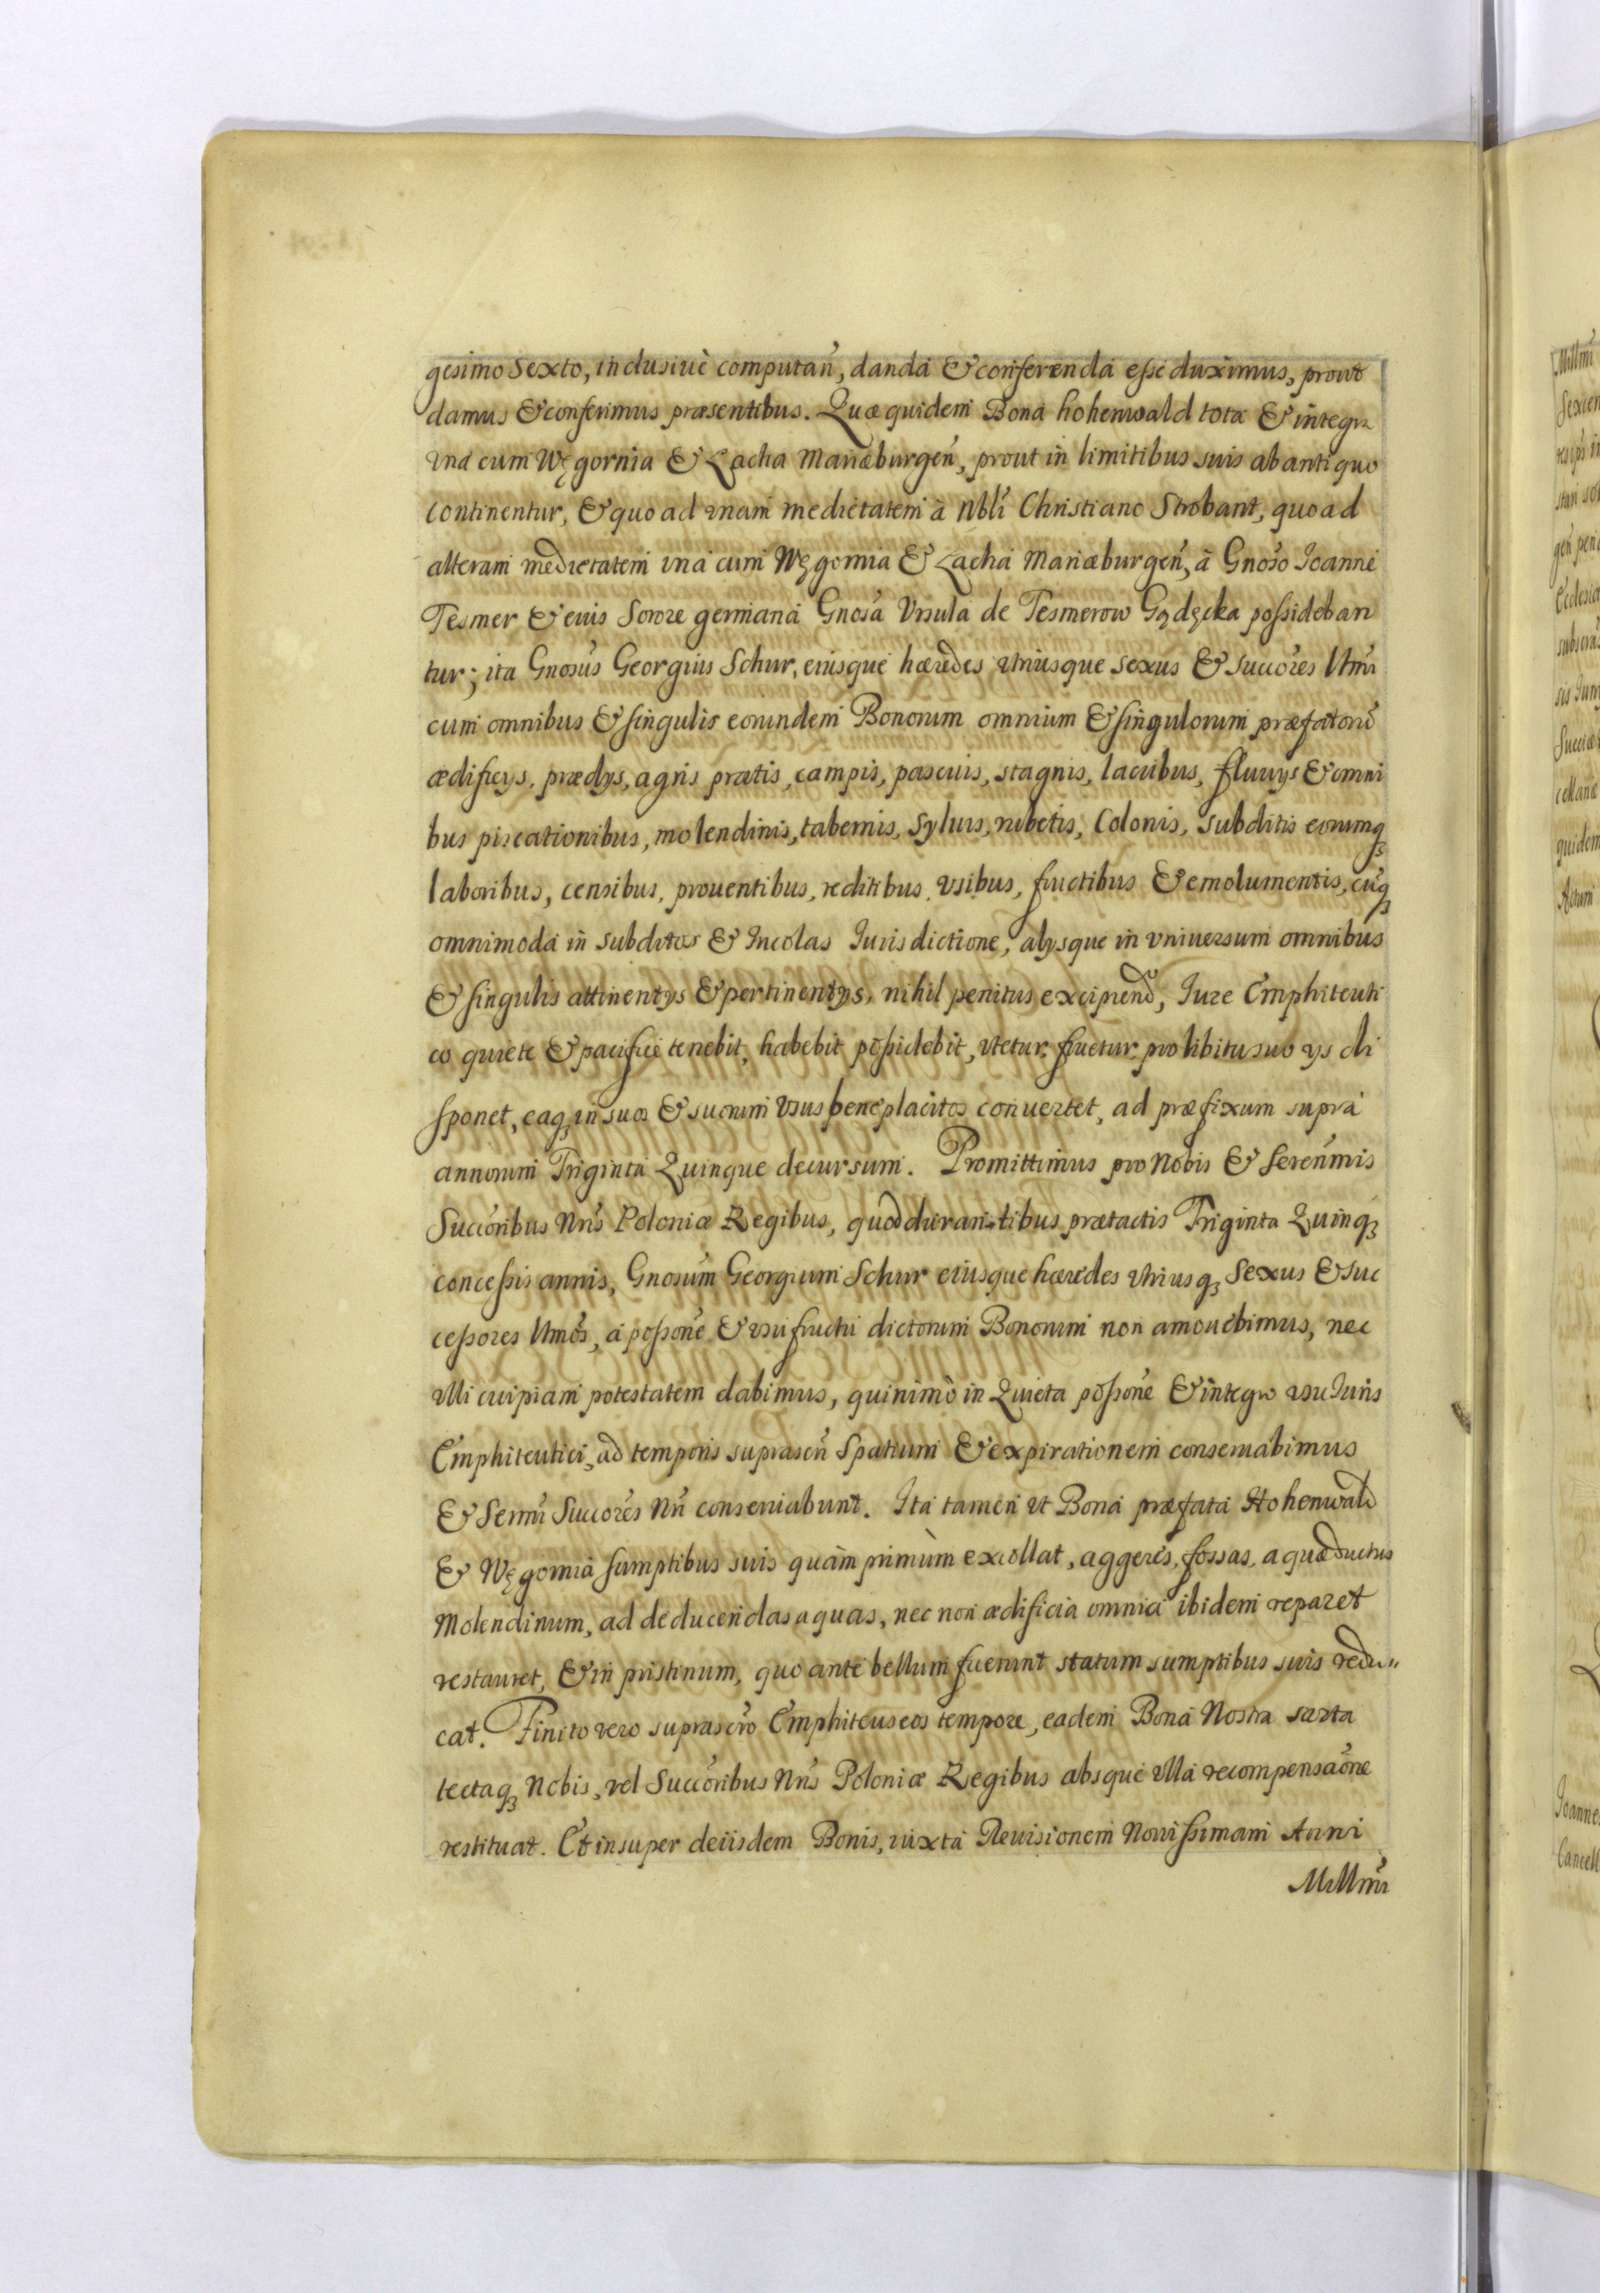 gesimo Sexto, inclusiuè computañ, danda & conferenda esse duximus, prout
damus & conferimus præsentibus. Quæ quidem Bona hohenwald tota & integra
vna cum Węgornia & Lacha Mariæburgeñ, prout in limitibus suis ab antiquo
continentur, & quo ad vnam medietatem à Nbli Christiano Strobant, quo ad
alteram medietatem vna cum Węgornia & Lacha Mariæburgeñ, à Gnoso Joanne
Tesmer & eius Sorore germana Gnosa Vrsula de Tesmerow Gądęcka possideban
tur; ita Gnosus Georgius Schur, eiusque hæredes vtriusque sexus & succores l̃tmi
cum omnibus & singulis eorundem Bonorum omnium & singulorum præfatorũ
ædificys, prædys, agris pratis, campis, pascuis, stagnis, lacubus, fluuys & omni
bus piscationibus, molendinis, tabernis, syluis, rubetis, Colonis, subditis eorumq3
laboribus, censibus, prouentibus, reditibus, vsibus, fructibus & emolumentis, cũq3
omnimoda in subditos & Incolas Jurisdictione, alysque in vniuersum omnibus
& singulis attinentys & pertinentys, nihil penitus excipiendo, Jure Emphiteuti
co quiete & pacifice tenebit, habebit possidebit, vtetur, fruetur, pro libitu suo ys di
sponet, eaq3 in suos & suorum vsus beneplacitos conuertet, ad præfixum supra
annorum Triginta Quinque decursum. Promittimus pro Nobis & Serenmis
Succoribus Nris Poloniæ Regibus, quod durantibus prætactis Triginta Quinq3
concessis annis, Gnosum Georgium Schur eiusque hæredes vtriusq3 Sexus & suc
cessores l̃tmos, à possone & vsufructu dictorum Bonorum non amouebimus, nec
vlli cuipiam potestatem dabimus, quinimò in Quieta possone & integro vsu Juris
Emphiteutici, ad temporis suprascñ Spatium & expirationem conseruabimus
& Sermi Succores Nri conseruabunt. Ita tamen vt Bona præfata Hohenwald
& Węgornia sumptibus suis quàm primùm excollat, aggeres, fossas, aquæductus
Molendinum, ad deducendas aquas, nec non ædificia omnia ibidem reparet
restauret, & in pristinum, quo ante bellum fuerunt statum sumptibus suis redu„
cat. Finito vero suprascro Emphiteuseos tempore, eadem Bona Nostra sarta
tectaq3 Nobis, vel Succoribus Nris Poloniæ Regibus absque vlla recompensaone
restituat. Et insuper de iisdem Bonis, iuxta Reuisionem Nouissimam Anni
Millmi